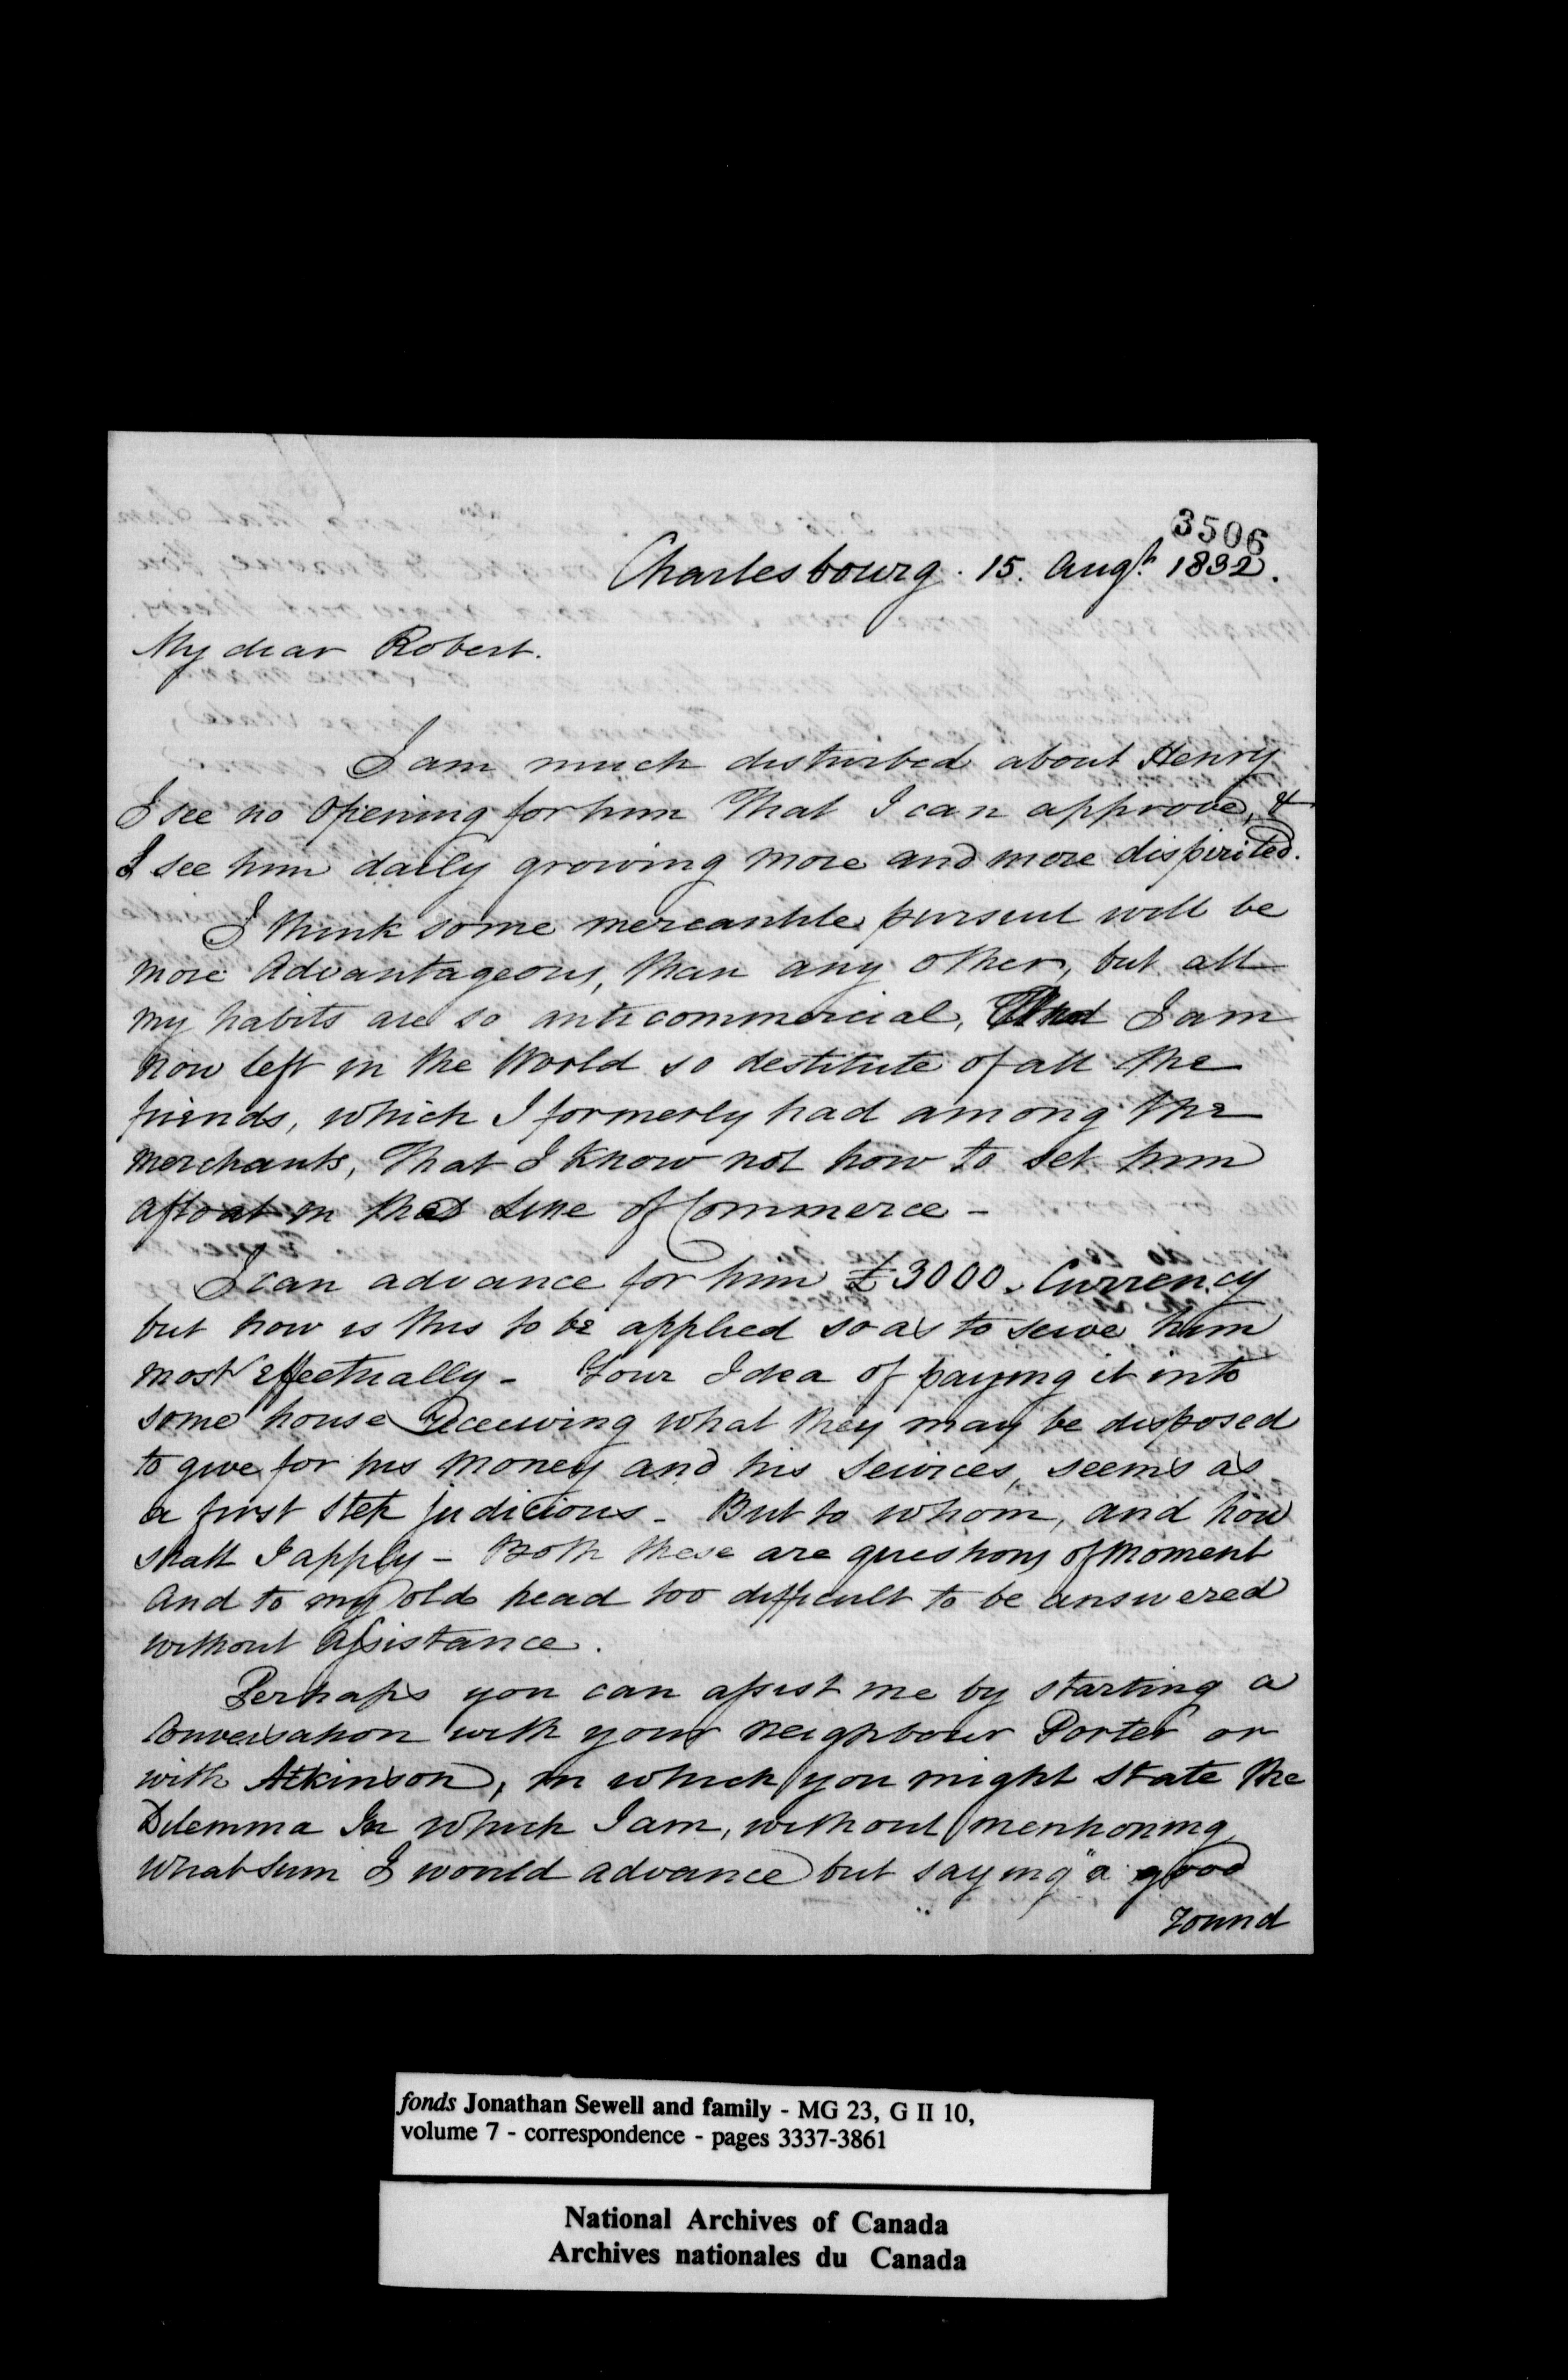 3506
Charlesbourg. 15. Augt. 1832.
My dear Robert.
I am much disturbed about Henry
I see no Opening for him That I can approve, &
I see him daily growing more and more dispirited.
I think some mercantile pursuit will be
more Advantageous, than any other, but all
my habits are so anticommercial, And I am
now left in the World so destitute of all the
friends, which I formerly had among the
Merchants, That I know not how to set him
afloat in that Line of Commerce -
I can advance for him £3000. Currency
but how is this to be applied so as to serve him
most effectually - Your Idea of paying it into
some house Receiving what they may be disposed
to give for his Money and his Services, seems as
a first Step judicious - But to whom, and how
shall I apply - Both these are questions of Moment
And to my old head too difficult to be answered
without Assistance.
Perhaps you can assist me by starting a
Conversation with your neighbour Porter or
with Atkinson, in which you might State the
Dilemma In which I am, without mentioning
What Sum I would advance but saying "a good
round
fonds Jonathan Sewell and family - MG 23, G II 10,
volume 7 - correspondence - pages 3337-3861
National Archives of Canada
Archives nationales du Canada